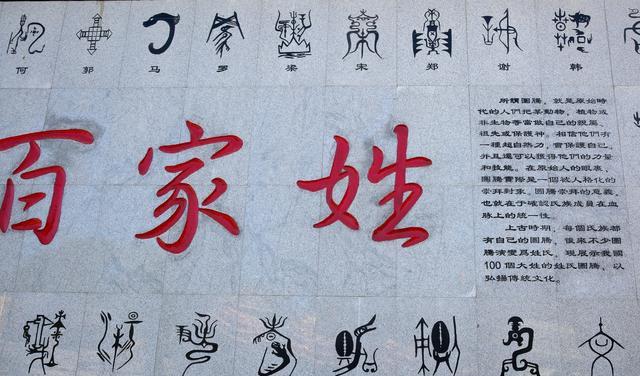 何 郭 马 罗 梁 宋 郑 谢 韩
百家姓
所謂圖騰，就是原始時
代的人們把某動物，植物或
非生物等當做自己的親屬、
祖先或保護神。相信他們有
一種超自然力，會保護自己，
并且還可以獲得他們的力量
和技能。在原始人的眼裏，
圖騰實際是一個被人格化的
崇拜對象。圖騰崇拜的意義，
也就在于確認氏族成員在血
脉上的統一性。
上古時期，每個氏族都
有自己的圖騰，後來不少圖
騰演變爲姓氏。現展示我國
100個大姓的姓氏圖騰，以
弘揚傳統文化。